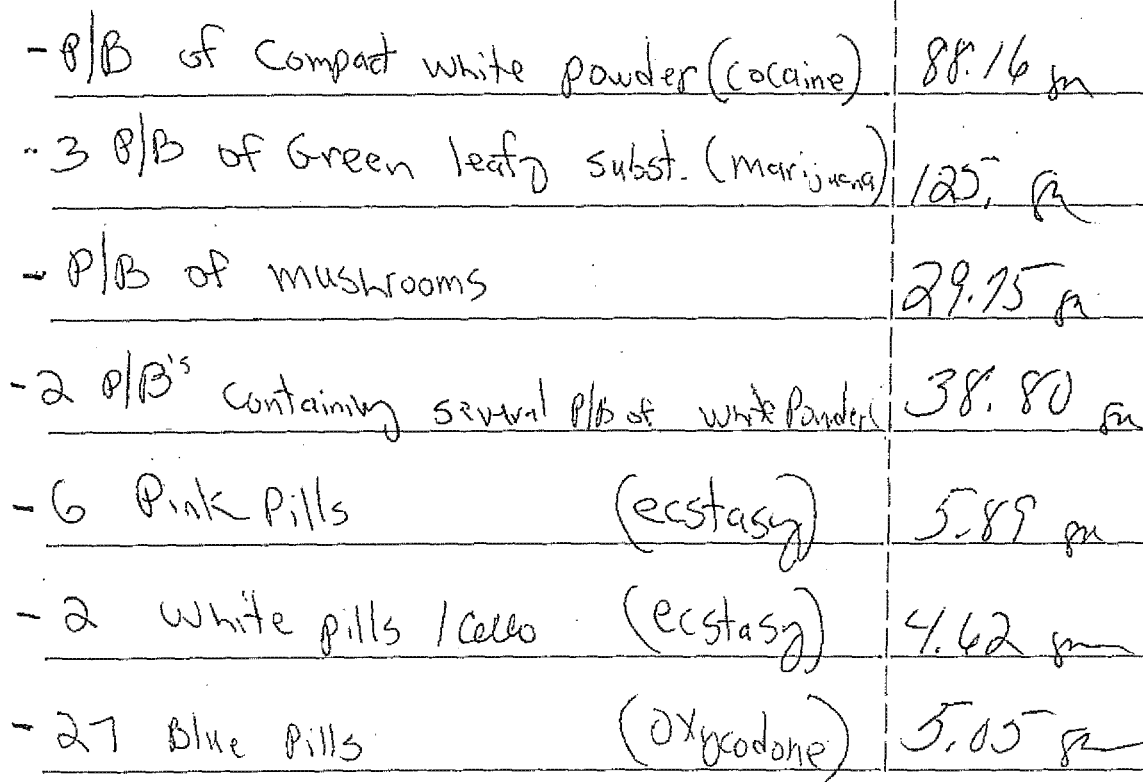 - P/B of Compact white powder (cocaine) 88.16 gm
- 3 P/B of Green leafy subst. (marijuana) 125. gm
- P/B of mushrooms 29.75 gm
- 2 P/B's containing several P/B of white Powder 38.80 gm
- 6 Pink Pills (ecstasy) 5.89 gm
- 2 White pills / Cello (ecstasy) 4.62 gm
- 27 Blue Pills (oxycodone) 5.05 gm